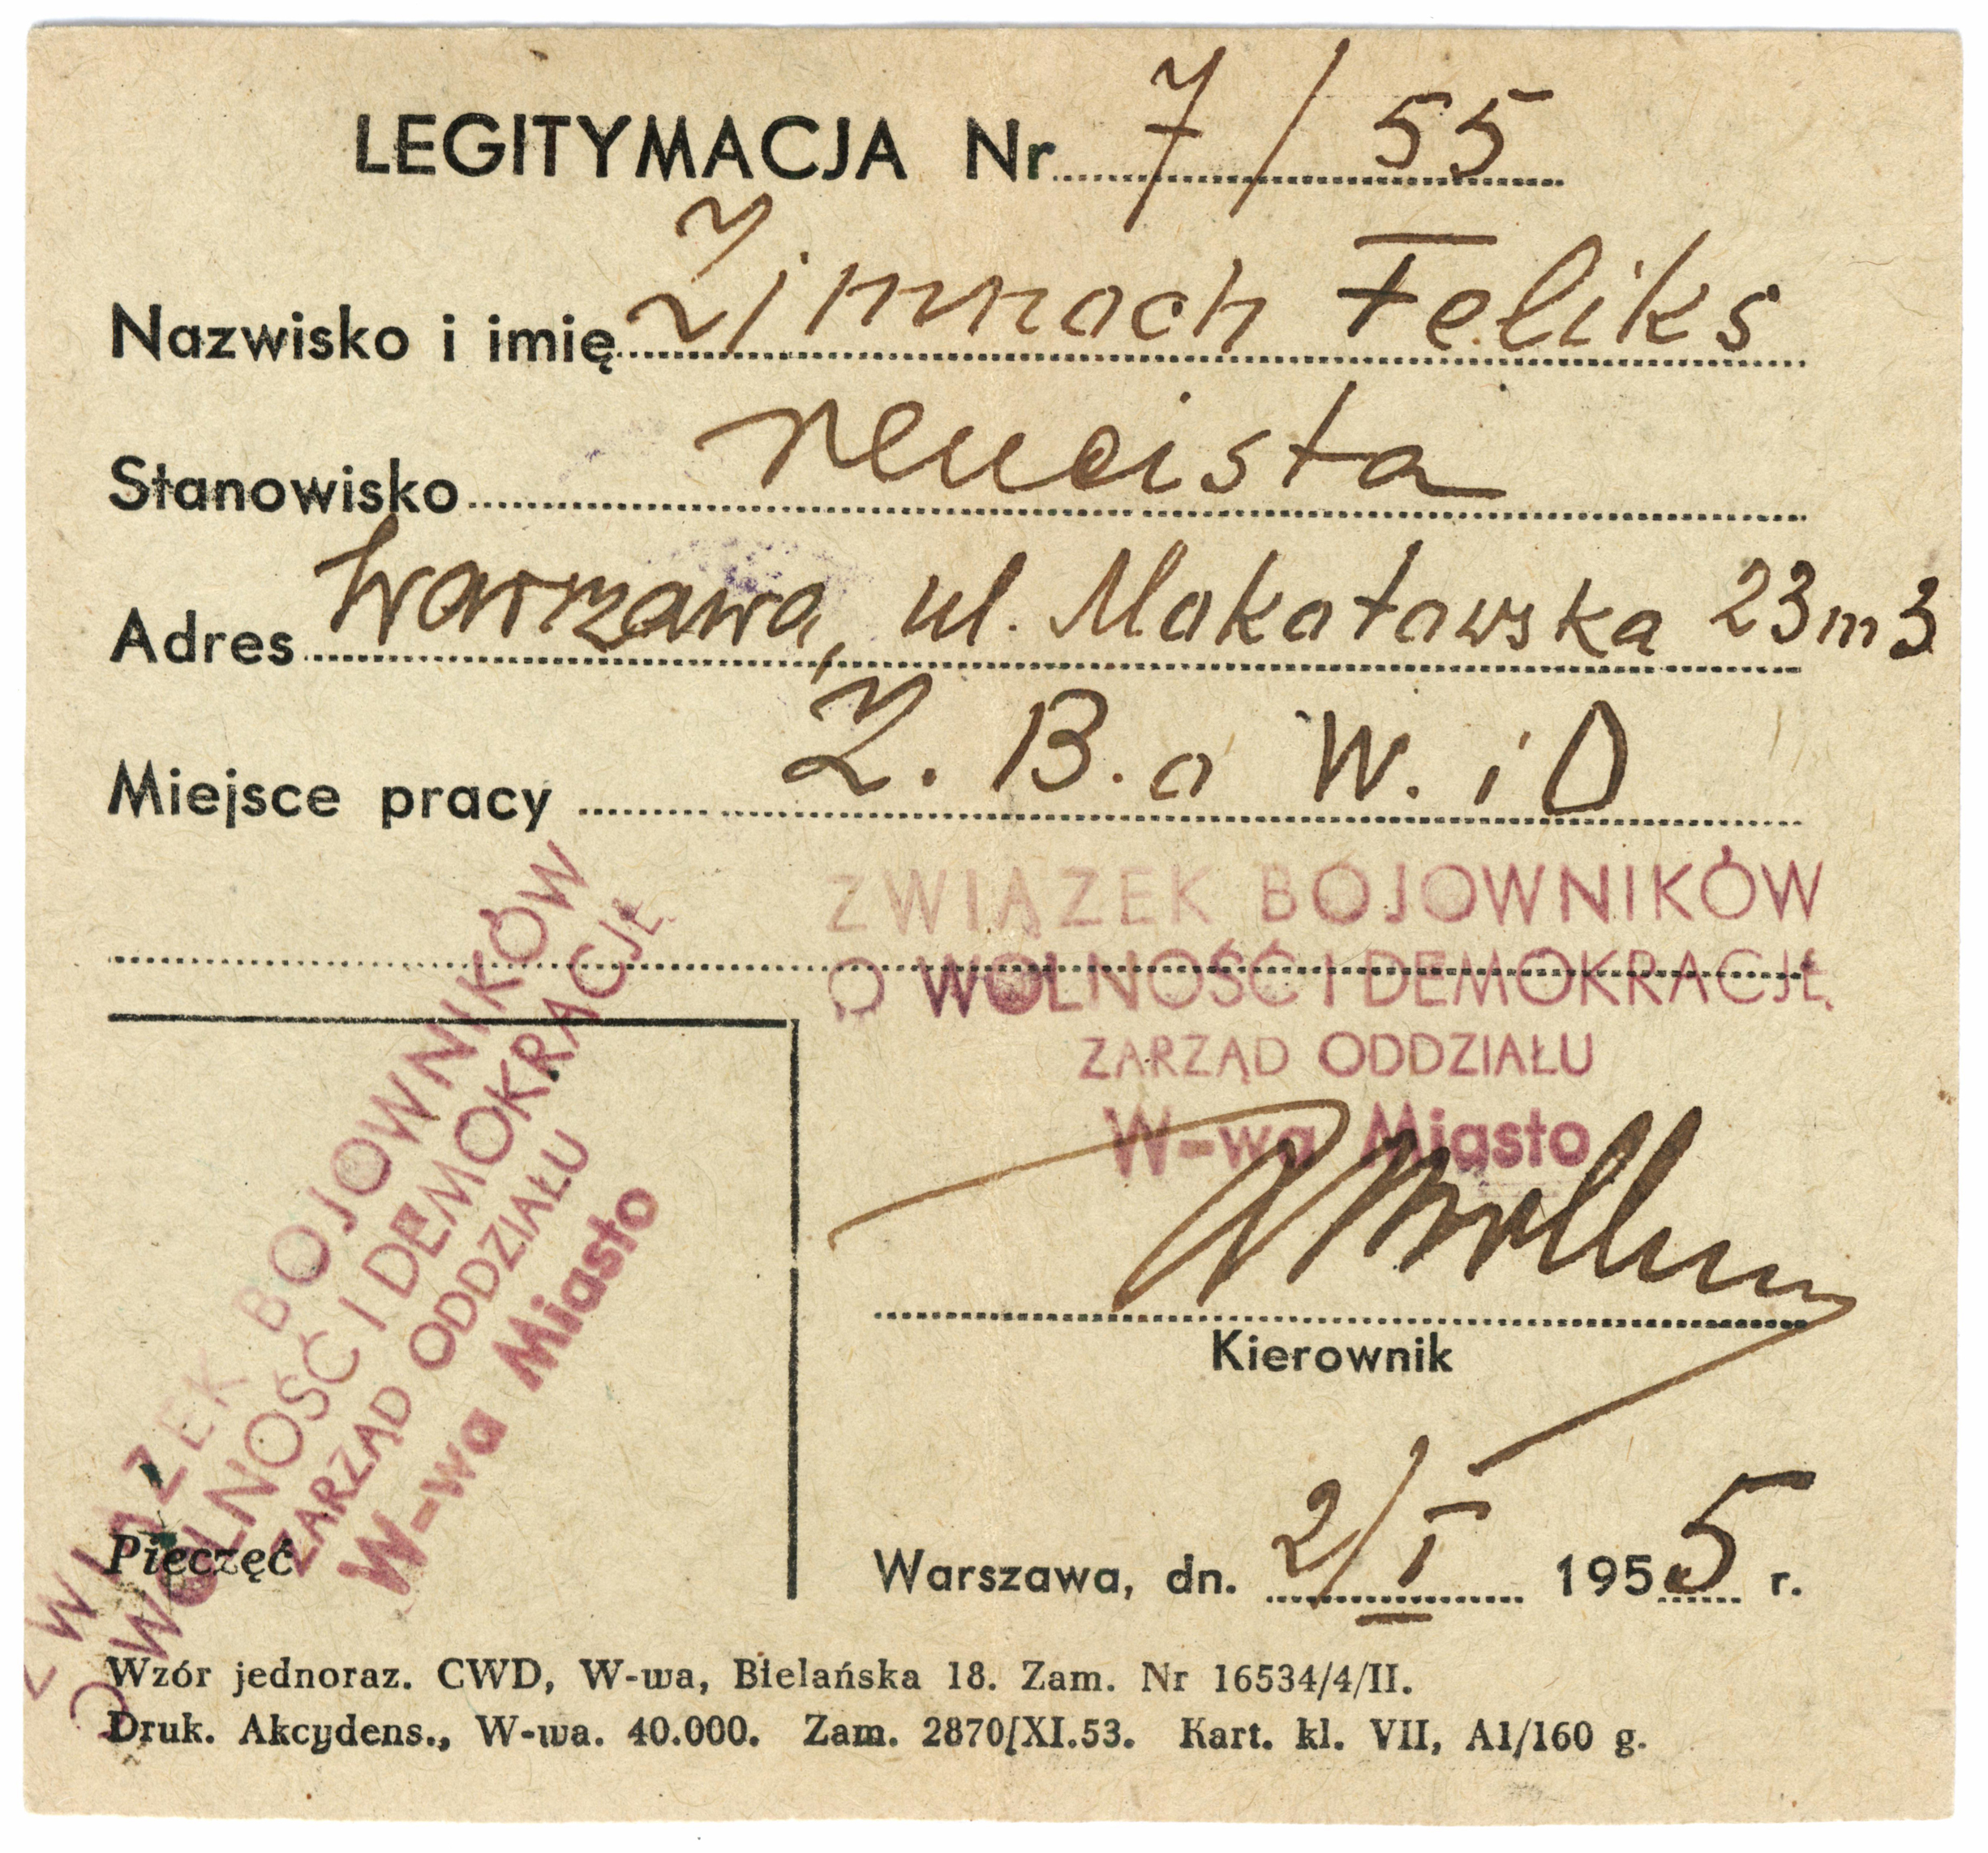 LEGITYMACJA Nr 7/55
Nazwisko i imię Zimnoch Feliks
Stanowisko rencista
Adres Warszawa, ul. Mokotowska 23 m 3
Miejsce pracy Z. B. o W. i D
ZWIĄZEK BOJOWNIKÓW
O WOLNOŚĆ I DEMOKRACJĘ
ZARZĄD ODDZIAŁU
W-wa Miasto
Kierownik
ZWIĄZEK BOJOWNIKÓW
O WOLNOŚĆ I DEMOKRACJĘ
ZARZĄD ODDZIAŁU
W-wa Miasto
Pieczęć
Warszawa, dn. 2/I 1955 r.
Wzór jednoraz. CWD, W-wa, Bielańska 18. Zam. Nr 16534/4/II.
Druk. Akcydens., W-wa. 40.000. Zam. 2870/XI.53. Kart. kl. VII, A1/160 g.